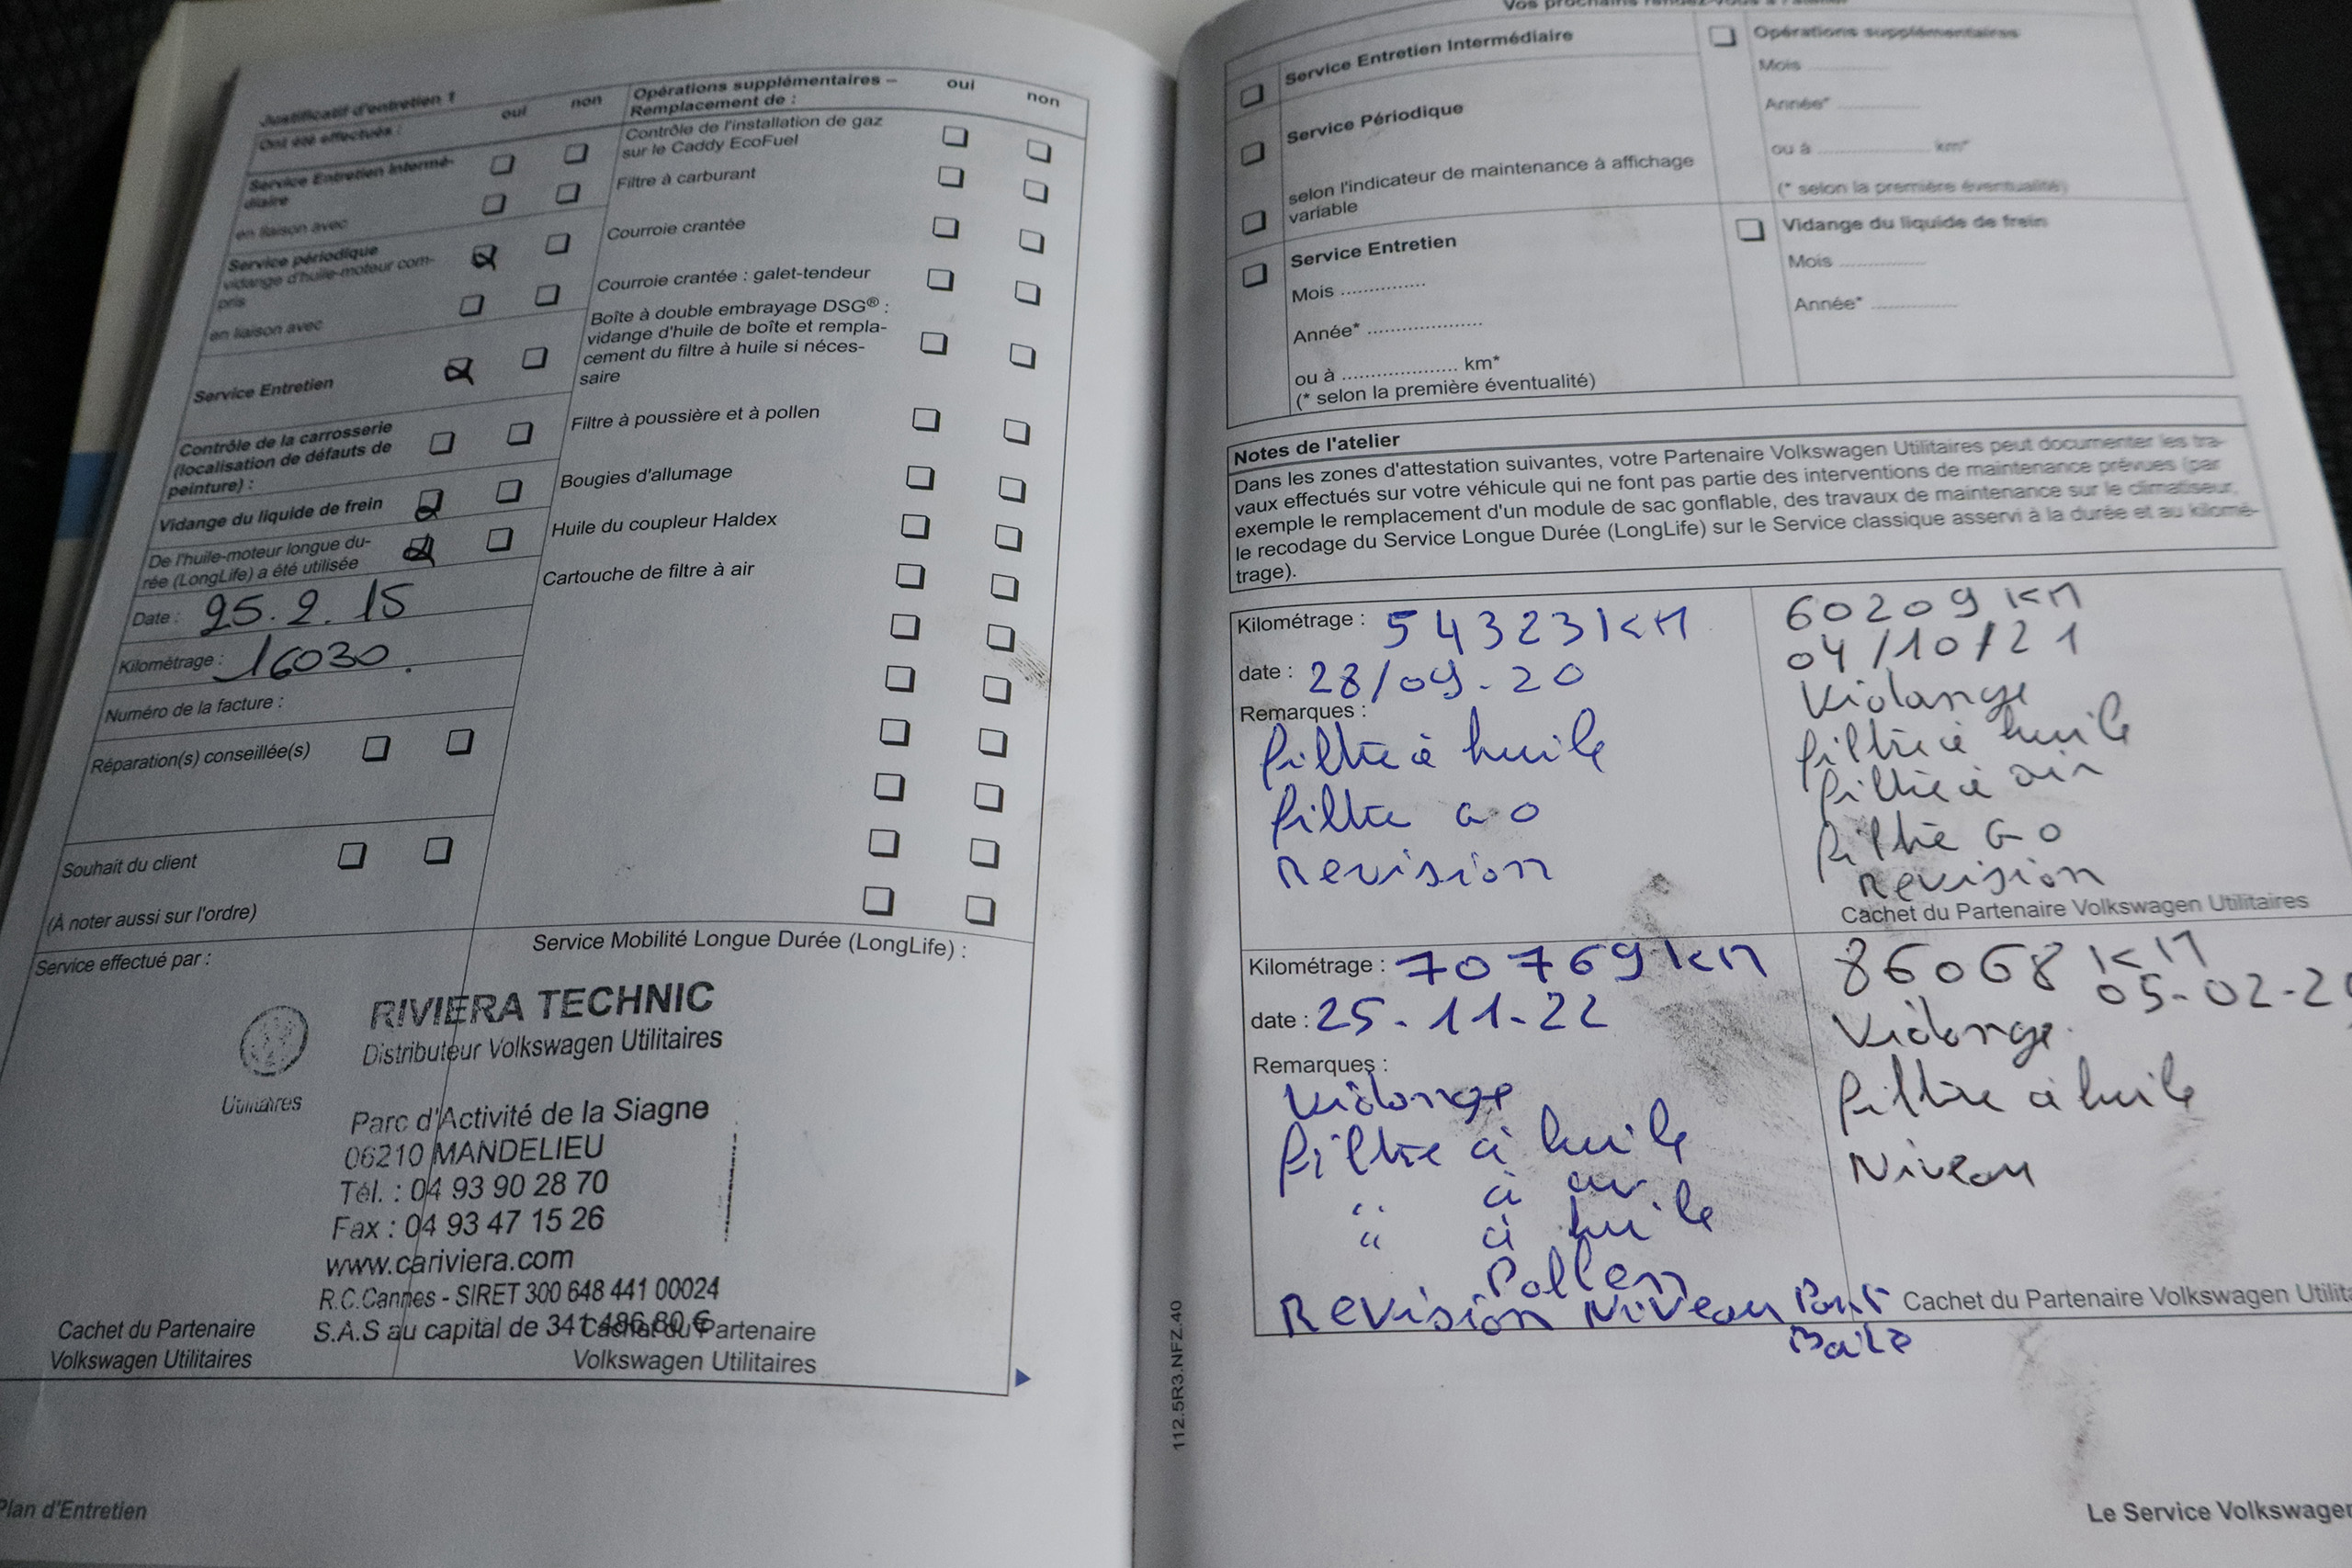 Justificatif d'entretien 1
Ont été effectués :
oui
non
Service Entretien Intermé-
diaire
en liaison avec
Service périodique
vidange d'huile-moteur com-
pris
en liaison avec
Service Entretien
Contrôle de la carrosserie
(localisation de défauts de
peinture) :
Vidange du liquide de frein
De l'huile-moteur longue du-
rée (LongLife) a été utilisée
Date : 25.2.15
Kilométrage : 16030.
Numéro de la facture :
Réparation(s) conseillée(s)
Souhait du client
(À noter aussi sur l'ordre)
Opérations supplémentaires –
Remplacement de :
oui
non
Contrôle de l'installation de gaz
sur le Caddy EcoFuel
Filtre à carburant
Courroie crantée
Courroie crantée : galet-tendeur
Boîte à double embrayage DSG® :
vidange d'huile de boîte et rempla-
cement du filtre à huile si néces-
saire
Filtre à poussière et à pollen
Bougies d'allumage
Huile du coupleur Haldex
Cartouche de filtre à air
Service effectué par :
Service Mobilité Longue Durée (LongLife) :
Utilitaires
RIVIERA TECHNIC
Distributeur Volkswagen Utilitaires
Parc d'Activité de la Siagne
06210 MANDELIEU
Tél. : 04 93 90 28 70
Fax : 04 93 47 15 26
www.cariviera.com
R.C.Cannes - SIRET 300 648 441 00024
S.A.S au capital de 341 486,80 €
Cachet du Partenaire
Volkswagen Utilitaires
Cachet du Partenaire
Volkswagen Utilitaires
Plan d'Entretien
Vos prochains rendez-vous à l'atelier
Service Entretien Intermédiaire
Service Périodique
selon l'indicateur de maintenance à affichage
variable
Service Entretien
Mois ...............
Année* ....................
ou à .................... km*
(* selon la première éventualité)
Opérations supplémentaires
Mois ...............
Année* ...............
ou à .................... km*
(* selon la première éventualité)
Vidange du liquide de frein
Mois ...............
Année* ...............
Notes de l'atelier
Dans les zones d'attestation suivantes, votre Partenaire Volkswagen Utilitaires peut documenter les tra-
vaux effectués sur votre véhicule qui ne font pas partie des interventions de maintenance prévues (par
exemple le remplacement d'un module de sac gonflable, des travaux de maintenance sur le climatiseur,
le recodage du Service Longue Durée (LongLife) sur le Service classique asservi à la durée et au kilomé-
trage).
Kilométrage : 54323 KM
date : 28/09-20
Remarques :
filtre à huile
filtre GO
Revision
60209 KM
04/10/21
Vidange
filtre à huile
filtre à air
filtre GO
Revision
Cachet du Partenaire Volkswagen Utilitaires
Kilométrage : 70769 KM
date : 25-11-22
Remarques :
Vidange
filtre à huile
" à air
" à huile
Pollen
Revision Niveau Pont
Boite
86068 KM
05-02-2
Vidange
filtre à huile
Niveau
Cachet du Partenaire Volkswagen Utilita
112.5R3.NFZ.40
Le Service Volkswagen